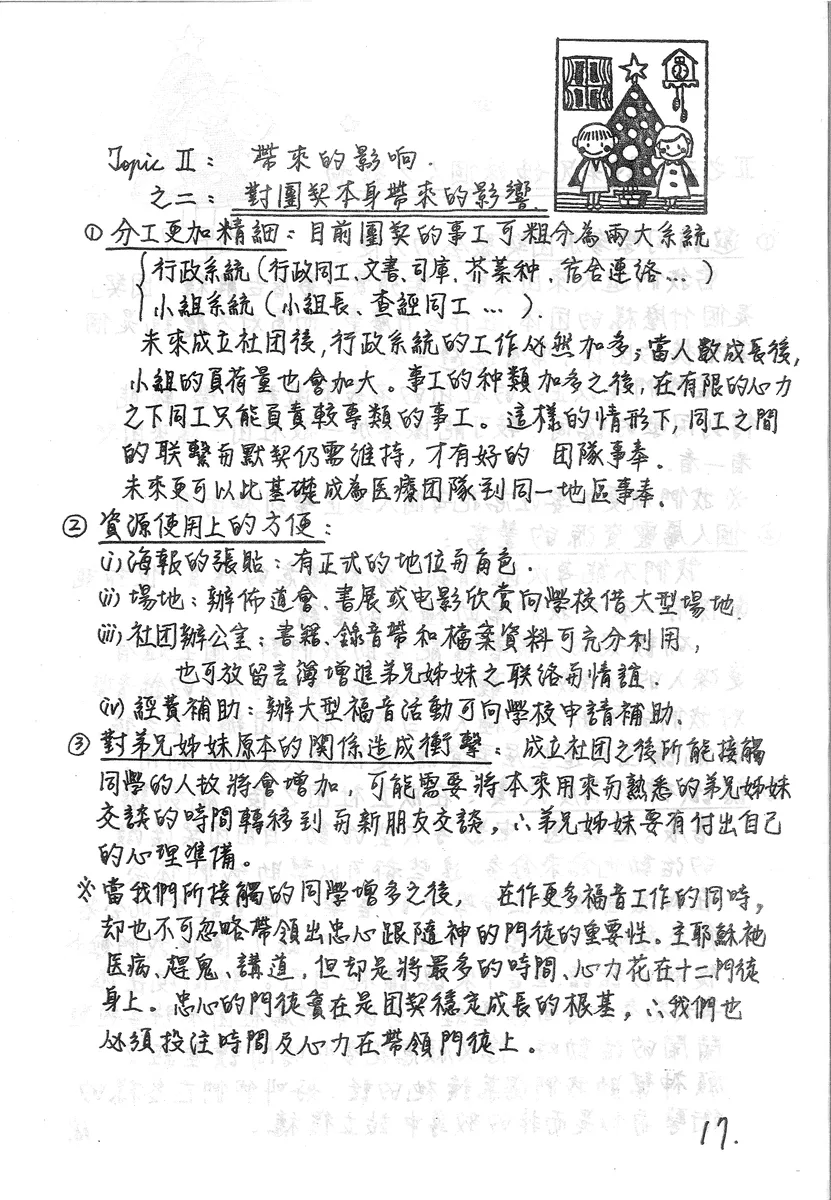 Topic II： 帶來的影响.
之二：對團契本身帶來的影響.
① 分工更加精細：目前團契的事工可粗分為兩大系統
行政系統(行政同工、文書、司庫、芥菜种、宿舍連絡…)
小組系統(小組長、查經同工…).
未來成立社团後,行政系統的工作必然加多;當人數成長後,
小組的負荷量也會加大。事工的种類加多之後,在有限的心力
之下同工只能負責較專類的事工。這樣的情形下,同工之間
的联繫与默契仍需維持,才有好的 团隊事奉。
未來更可以比基礎成為医療团隊到同一地區事奉.
② 資源使用上的方便：
(i)海報的張貼：有正式的地位与角色.
(ii)場地：辦佈道會、書展或电影欣赏向學校借大型場地.
(iii)社团辦公室：書籍、錄音帶和檔案資料可充分利用,
也可放留言簿增進弟兄姊妹之联络与情誼.
(iv)經費補助：辦大型福音活動可向學校申請補助.
③ 對弟兄姊妹原本的関係造成衝擊：成立社团之後所能接觸
同學的人故將會增加,可能需要將本來用來与熟悉的弟兄姊妹
交談的時間轉移到与新朋友交談,∴弟兄姊妹要有付出自己
的心理準備。
※當我們所接觸的同學增多之後, 在作更多福音工作的同時,
却也不可忽略帶領出忠心跟隨神的門徒的重要性。主耶穌祂
医病、趕鬼、講道,但却是將最多的時間、心力花在十二門徒
身上。忠心的門徒實在是团契穩定成長的根基,∴我們也
必須投注時間及心力在帶領門徒上。
17.